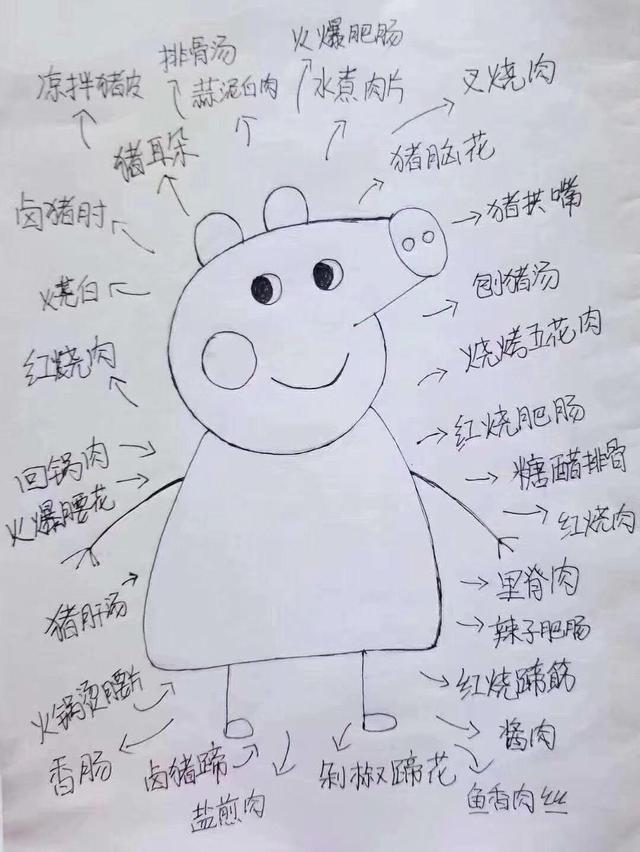 火爆肥肠
排骨汤
凉拌猪皮
蒜泥白肉
水煮肉片
叉烧肉
猪耳朵
猪脑花
卤猪肘
猪拱嘴
烧白
刨猪汤
红烧肉
烧烤五花肉
红烧肥肠
回锅肉
糖醋排骨
火爆腰花
红烧肉
里脊肉
猪肝汤
辣子肥肠
火锅烫腰片
红烧蹄筋
香肠
卤猪蹄
剁椒蹄花
酱肉
盐煎肉
鱼香肉丝